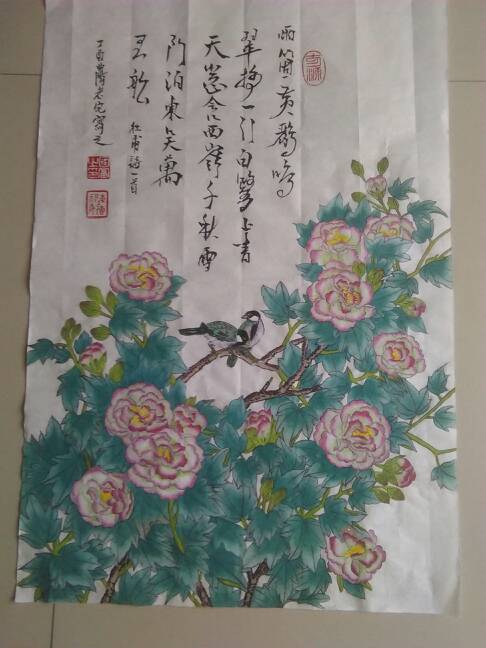 兩箇黃鸝鳴
翠柳一行白鷺上青
天窓含西嶺千秋雪
門泊東吴萬
里船
杜甫詩一首
丁酉 老 寫之